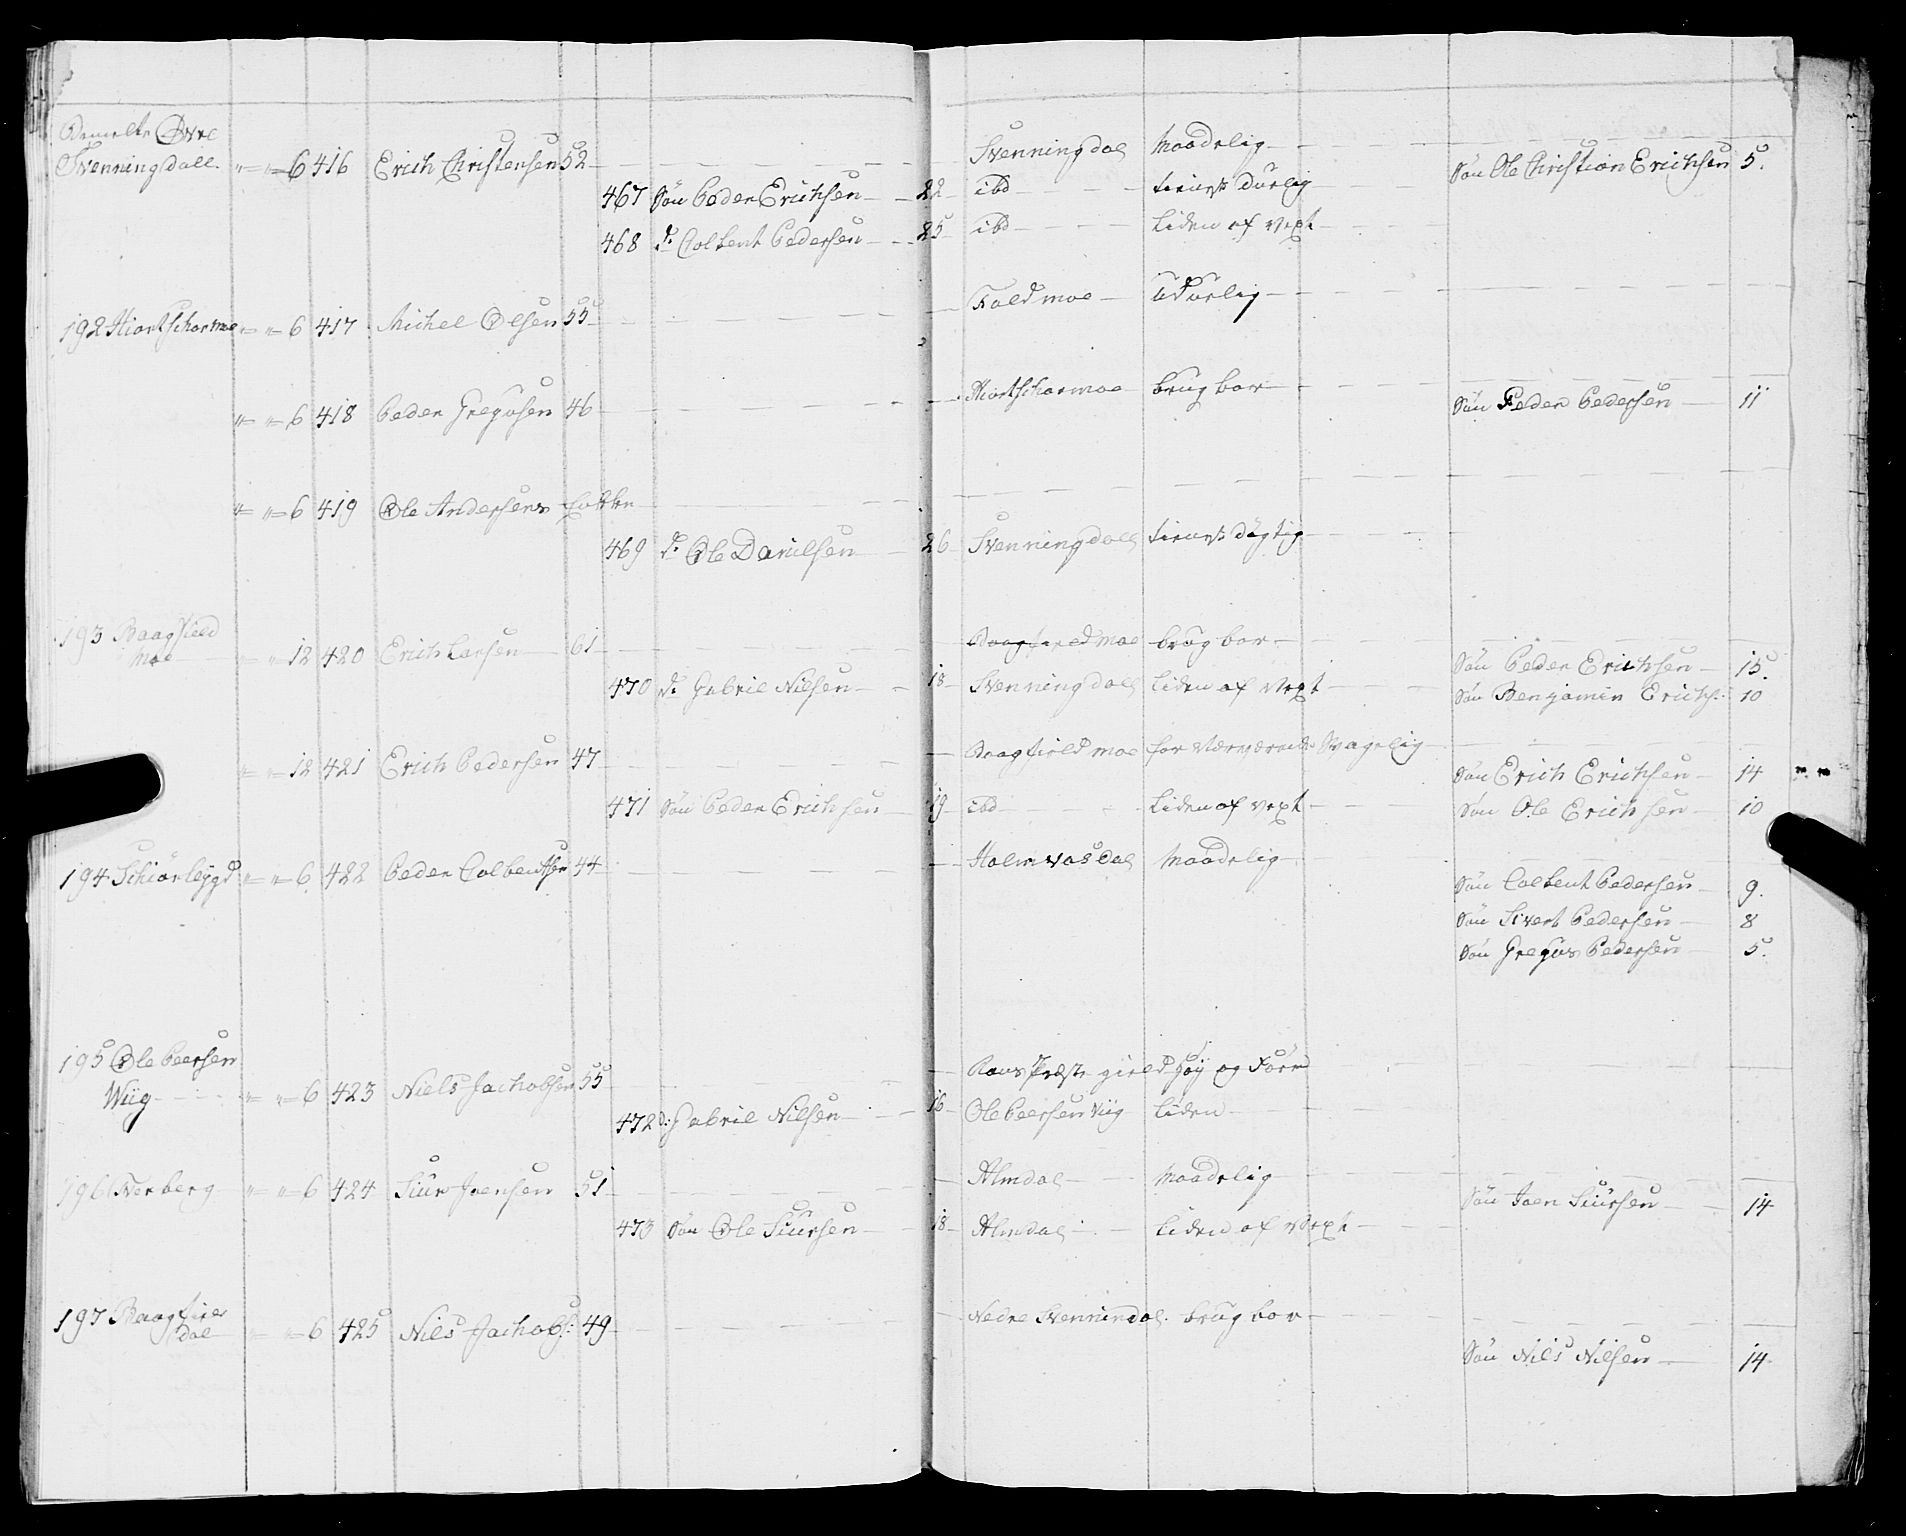 Bemelte Øvre
Svenningdall " " 6 416 Erich Christensen 52 Svenningdal Maadelig Søn Ole Christian Erichsen 5.
467 Søn Peder Erichsen 22 ibd tienst durlig
468 d: Colbent Pedersen 25 ibd liden af vext
192 Hiortscharmoe " " 6 417 Michel Olsen 55 Foldmoe udurlig
" " 6 418 Peder Gregusen 46 Hiortscharmoe brugbar Søn Peder Pedersen 11
" " 6 419 Ole Andersens Enkke
469 d: Ole Danilsen 26 Svenningdall tienst dygtig
193 Baagfield
Moe " " 12 420 Erich Larsen 61 Baagfieldmoe brugbar Søn Peder Erichsen 15.
470 d: Gabriel Nilsen 18 Svenningdall liden af vext Søn Benjamin Erichs: 10
" " 12 421 Erich Pedersen 47 Baagfieldmoe for nærværende Svagelig Søn Erich Erichsen 14
471 Søn Peder Erichsen 19 ibd liden af vext Søn Ole Erichsen 10
194 Schiørlegd " " 6 422 Peder Colbentsen 44 Holmvasdal Maadelig
Søn Colbent Pedersen 9.
Søn Sivert Pedersen 8
Søn Gregus Pedersen 5.
195 Ole Peersen
Wiig " " 6 423 Niels Jachobsen 55 Rans Præstegield høy og Før
472 d: Gabriel Nilsen 16 Ole Peersen Viig liden
196 Nerberg " " 6 424 Siur Joensen 51 Almdal Maadelig Søn Joen Siursen 14
473 Søn Ole Siursen 18 Almdal liden af vext
197 Baagfield
dal " " 6 425 Nils Jachobs: 49 Nedre Svennindal brugbar
Søn Nils Nilsen 14